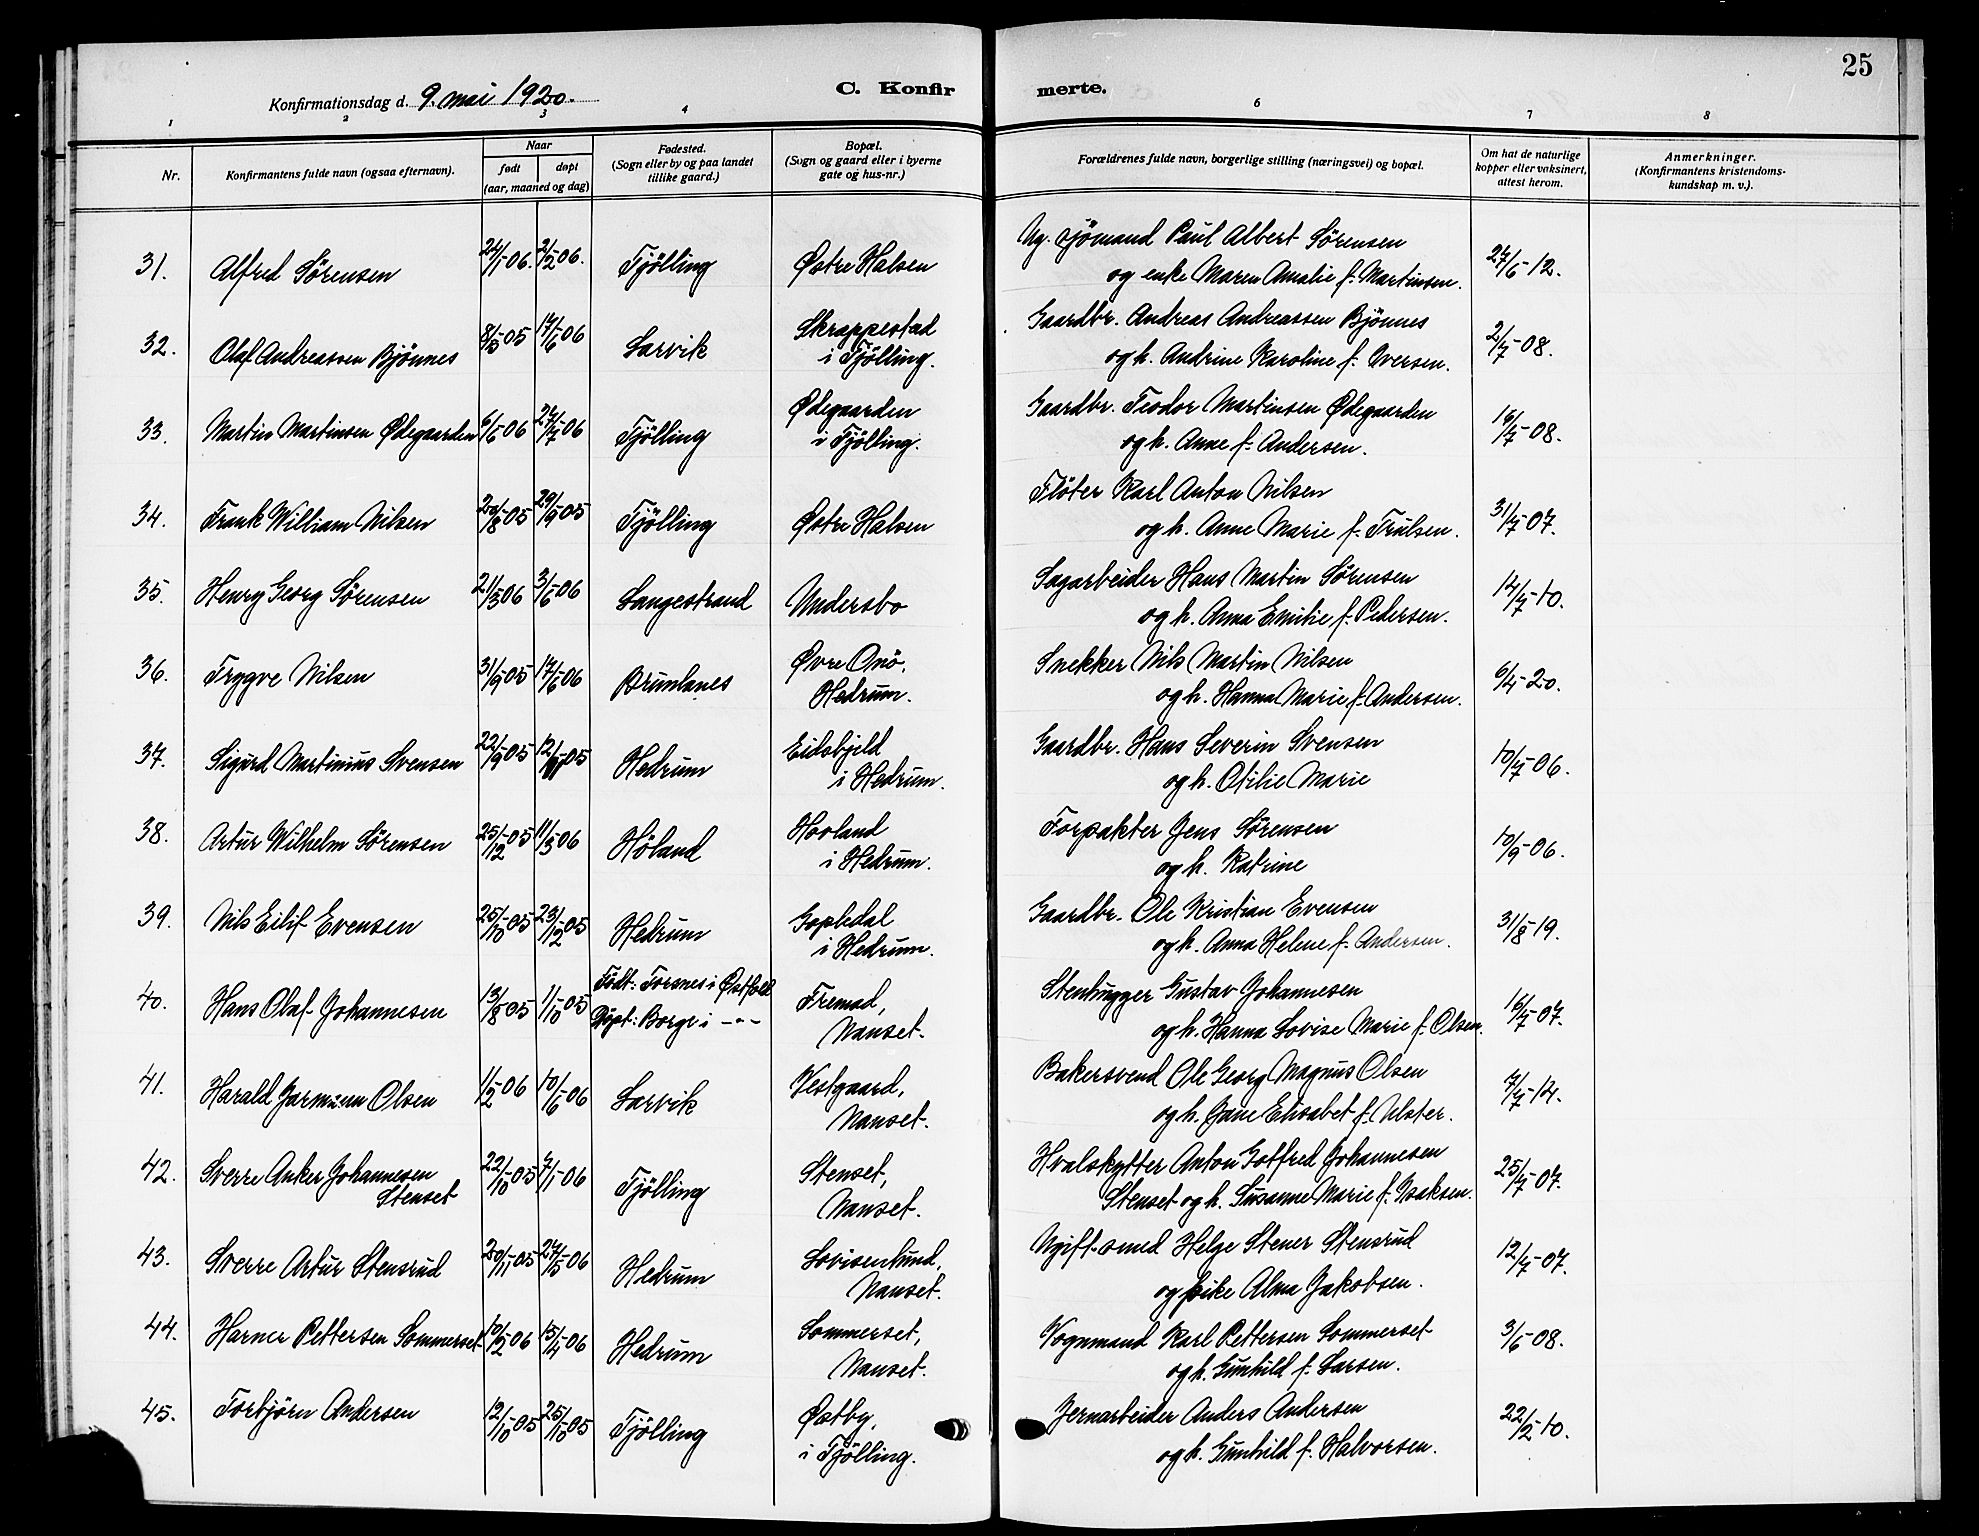 25
Konfirmationsdag d. 9. mai 1920.
C. Konfirmerte.
1 2 3 4 6 7 8
Nr.
Konfirmantens fulde navn (ogsaa efternavn).
Naar
født døpt
(aar, maaned og dag)
Fødested.
(Sogn eller by og paa landet
tillike gaard.)
Bopæl.
(Sogn og gaard eller i byerne
gate og hus-nr.)
Forældrenes fulde navn, borgerlige stilling (næringsvei) og bopæl.
Om hat de naturlige
kopper eller vaksinert,
attest herom.
Anmerkninger.
(Konfirmantens kristendoms-
kundskap m. v.).
31. Alfred Sørensen 24/1-06. 2/2-06. Tjølling Østre Halsen
Ug. sjömand Paul Albert Sörensen
og enke Maren Amalie f. Martinsen. 27/6-12.
32. Olaf Andreassen Bjönnes 8/5-05 17/6-06 Larvik Skrappestad
i Tjölling.
Gaardbr. Andreas Andreassen Bjönnes
og h. Andrine Karoline f. Iversen. 2/7-08.
33. Martin Martinsen Ødegaarden 6/6-06 27/7-06 Tjölling Ødegaarden
i Tjölling.
Gaardbr. Teodor Martinsen Ødegaarden
og h. Anne f. Andersen. 16/7-08.
34. Frank William Nilsen 20/8-05 29/9-05 Tjölling Østre Halsen
Flöter Karl Anton Nilsen
og h. Anne Marie f. Trulsen. 31/7-07.
35. Henry Georg Sörensen 21/3-06 3/6-06 Langestrand Undersbo
Sagarbeider Hans Martin Sörensen
og h. Anna Emilie f. Pedersen. 14/7-10.
36. Trygve Nilsen 31/9-05 17/6-06 Brunlanes Øvre Önö.
Hedrum.
Snekker Nils Martin Nilsen
og h. Hanna Marie f. Andersen. 6/4-20.
37. Sigurd Martinius Svensen 22/9-05 12/11-05 Hedrum Eidsfjeld
i Hedrum.
Gaardbr. Hans Severin Svensen
og h. Otilie Marie 10/7-06.
38. Artur Wilhelm Sörensen 25/12-05 11/3-06 Höland Hovland
i Hedrum.
Forpakter Jens Sörensen
og h. Katrine 10/9-06.
39. Nils Eilif Evensen 25/10-05 23/12-05 Hedrum Gopledal
i Hedrum.
Gaardbr. Ole Kristian Evensen
og h. Anna Helene f. Andersen. 31/8-19.
40. Hans Olaf Johannesen 13/8-05 1/10-05 Födt: Torsnes i Østfold
Döpt: Borge i -"-
Fremad,
Nanset.
Stenhugger Gustav Johannesen
og h. Hanna Lovise Marie f. Olsen. 16/7-07.
41. Harald Jarmann Olsen 1/2-06 10/6-06 Larvik Vestgaard,
Nanset.
Bakersvend Ole Georg Magnus Olsen
og h. Jane Elisabet f. Ulster. 7/7-14.
42. Sverre Anker Johannesen
Stenset 22/10-05 7/1-06 Tjölling Stenset,
Nanset.
Hvalskytter Anton Gotfred Johannesen
Stenset og h. Susanne Marie f. Isaksen. 25/7-07.
43. Sverre Artur Stensrud 20/11-05 27/5-06 Hedrum Lovisenlund,
Nanset.
Ugift smed Helge Stener Stensrud
og pike Alma Jakobsen. 12/7-07.
44. Harner Pettersen Sommerset 10/2-06 15/4-06 Hedrum Sommerset,
Nanset.
Vognmand Karl Pettersen Sommerset
og h. Gunhild f. Larsen. 3/6-08.
45. Torbjörn Andersen 12/10-05 25/10-05 Tjölling Østby,
i Tjölling.
Jernarbeider Anders Andersen
og h. Gunhild f. Halvorsen. 22/2-10.